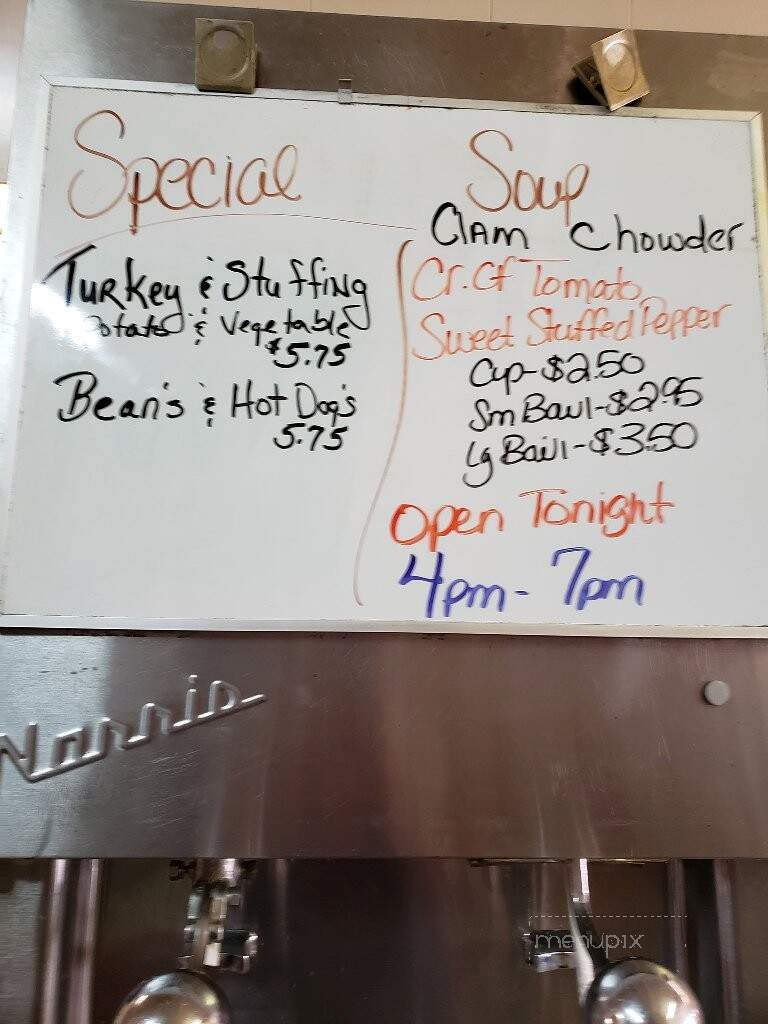 Special
Turkey & Stuffing
Potato & Vegetable
$5.75
Bean's & Hot Dog's
5.75
Soup
Clam Chowder
Cr. Of Tomato
Sweet Stuffed Pepper
Cup-$2.50
Sm Bowl-$2.95
Lg Bowl-$3.50
Open Tonight
4pm - 7pm
Norris
menupix